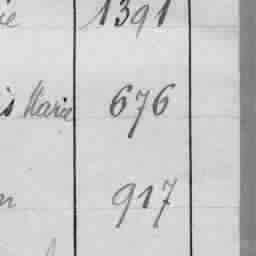 ie 1391
is Marie 676
n 917